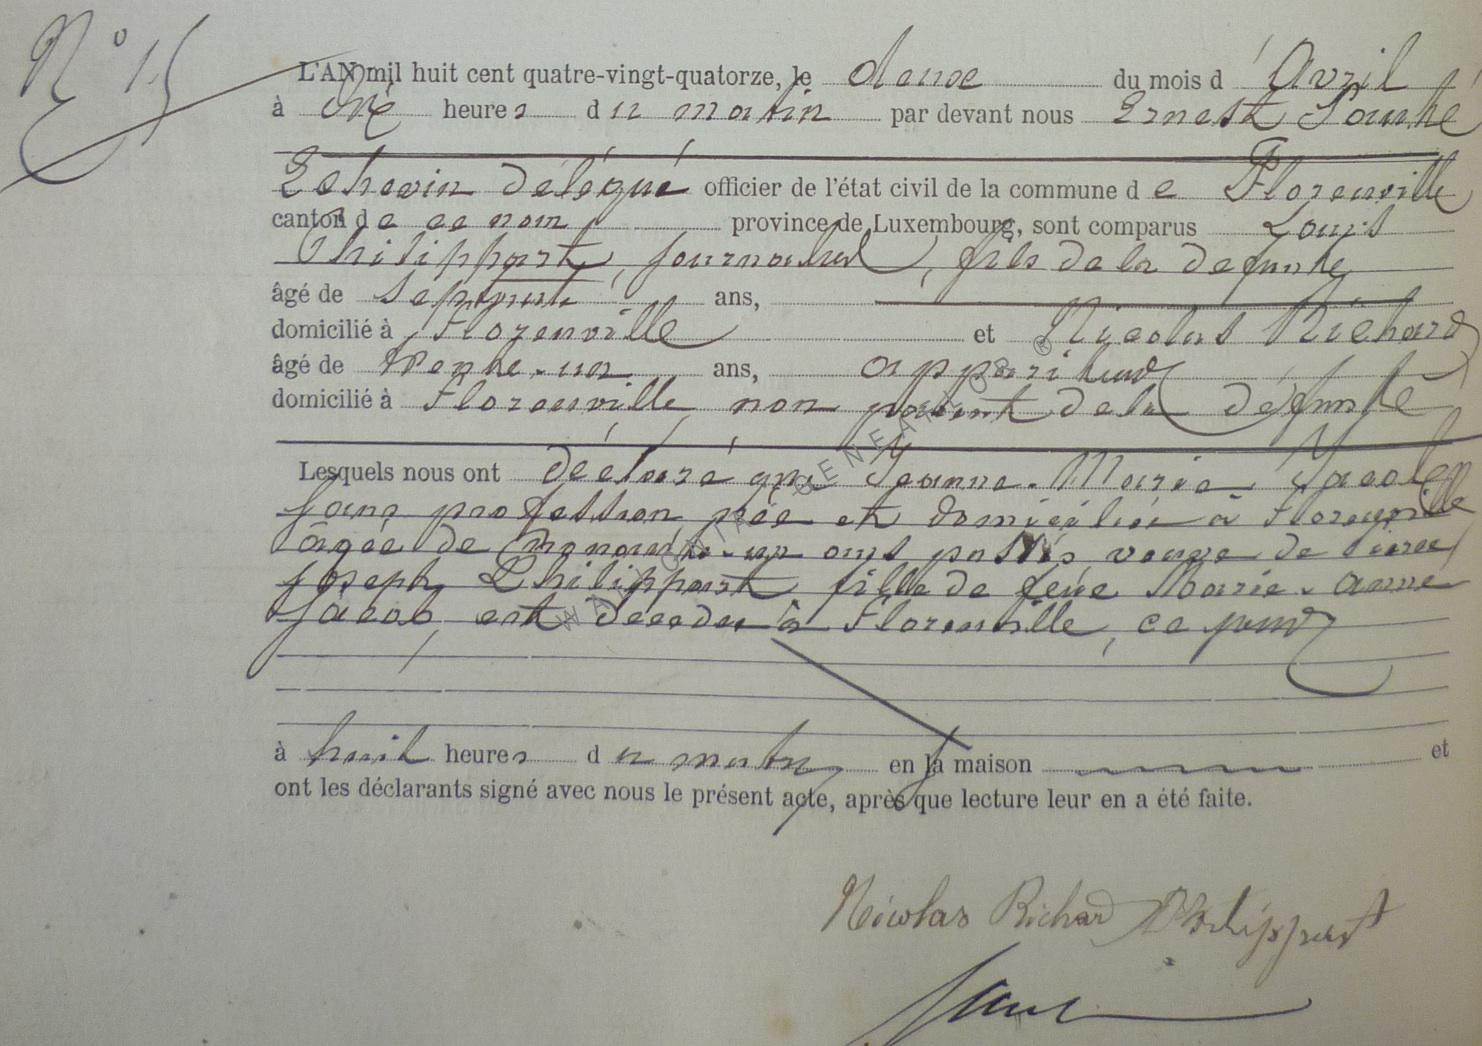 N° 15
L'AN mil huit cent quatre-vingt-quatorze, le douze du mois d'Avril
à onze heures du matin par devant nous Ernest
Echevin délégué officier de l'état civil de la commune de Florenville
canton de ce nom province de Luxembourg, sont comparus Louis
Philippart, journalier, fils de la defunte
âgé de ans,
domicilié à Florenville et Nicolas Richard
âgé de trente-un ans, appariteur
domicilié à Florenville non parent de la défunte
Lesquels nous ont déclaré que Jeanne-Marie Jacob
sans profession née et domiciliée à Florenville
âgée de nonante-un ans passés veuve de
Joseph Philippart fille de feue Marie-Anne
Jacob est décédée à Florenville, ce jour
à huit heures du matin en la maison et
ont les déclarants signé avec nous le présent acte, après que lecture leur en a été faite.
Nicolas Richard Philippart
WALLONIA GENEANOR ®